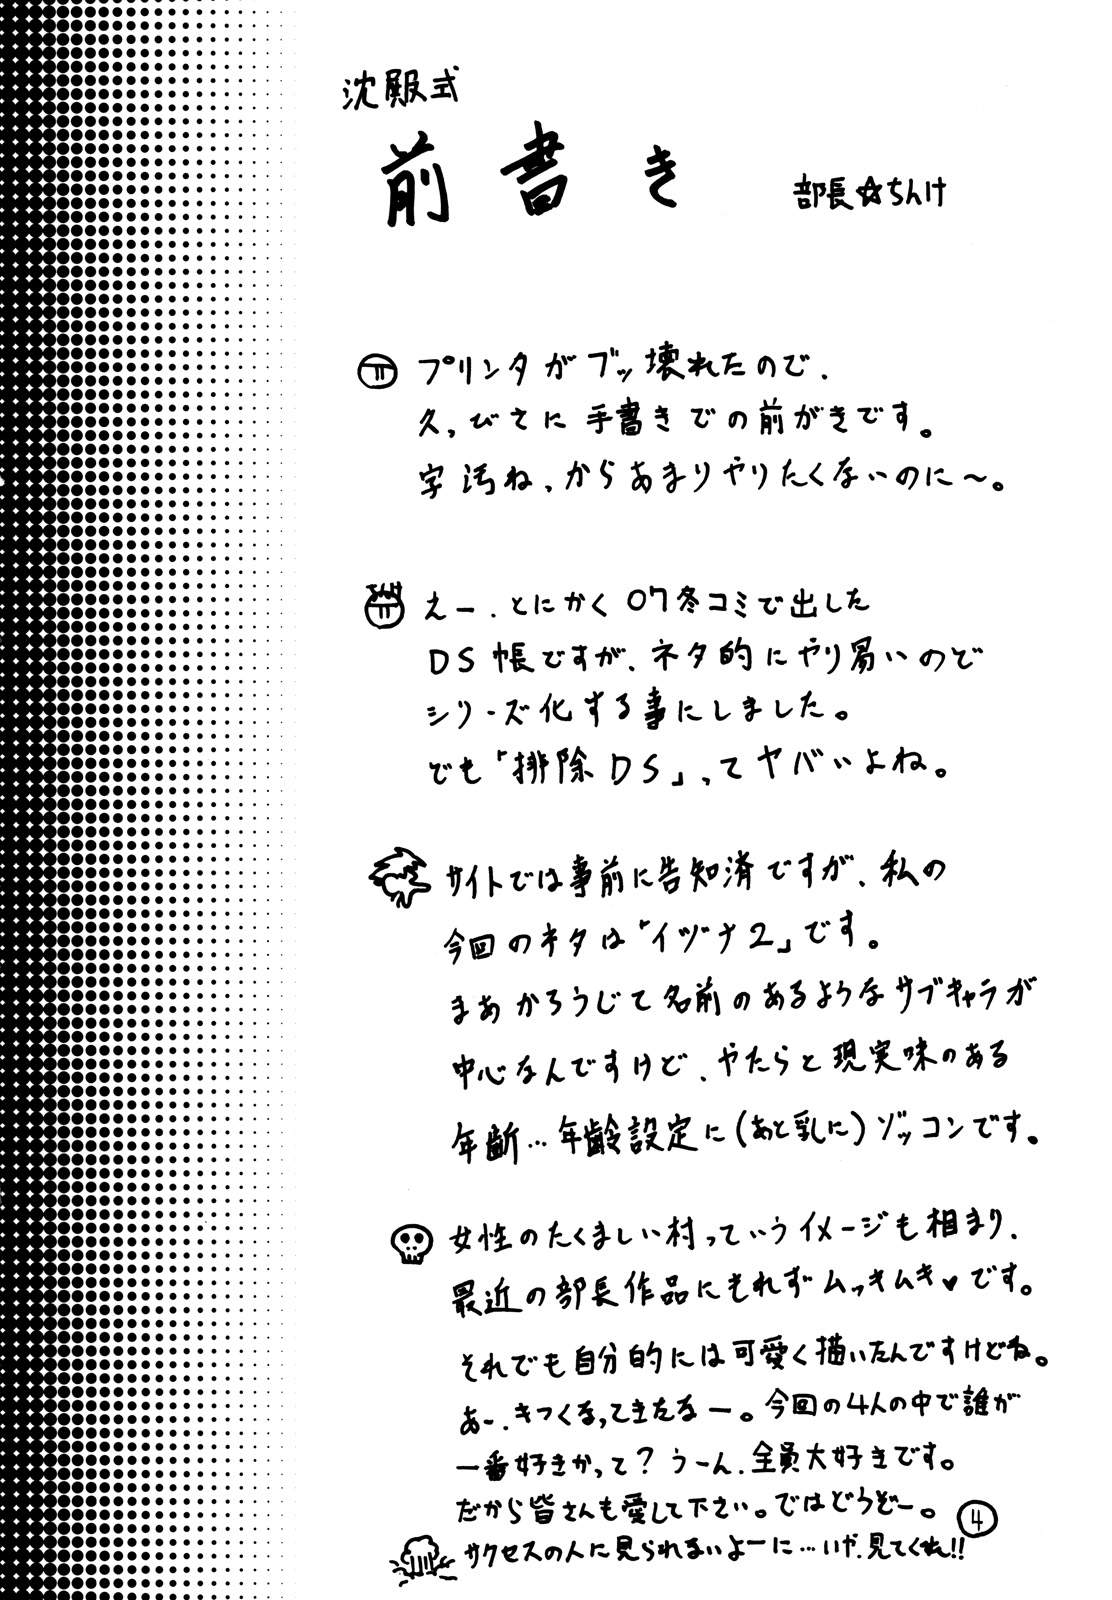 沈殿式
前書き
部長☆ちんけ
プリンタがブッ壊れたので、
久っびさに手書きでの前がきです。
字汚ね、からあまりやりたくないのに〜。
えー、とにかく07冬コミで出した
DS帳ですが、ネタ的にやり易いので
シリーズ化する事にしました。
でも「排除DS」ってヤバいよね。
サイトでは事前に告知済ですが、私の
今回のネタは「イヅナ2」です。
まあかろうじて名前のあるようなサブキャラが
中心なんですけど、やたらと現実味のある
年齢…年齢設定に(あと乳に)ゾッコンです。
女性のたくましい村っていうイメージも相まり、
最近の部長作品にもれずムっきムき♥です。
それでも自分的には可愛く描いたんですけどね。
あ〜、きつくなってきたなー。今回の4人の中で誰が
一番好きかって?うーん、全員大好きです。
だから皆さんも愛して下さい。ではどうぞー。
4
サクセスの人に見られないよーに…いや、見てくれ!!